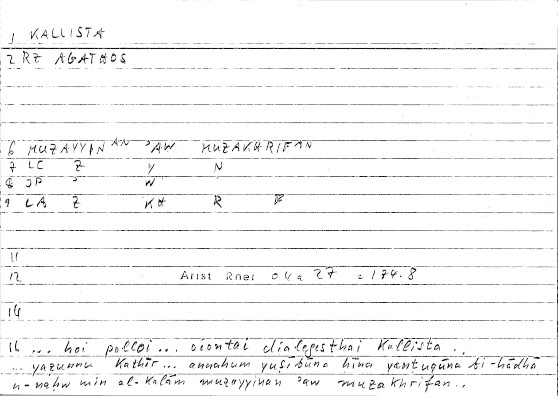 1 KALLISTA
2 RZ AGATHOS
6 MUZAYYINAN ʾAW MUZAKHRIFAN
7 LC Z Y N
8 JP ʾ W
9 LA Z KH R F
11
12 Arist Rhet 04a 27 = 174.8
14
16 ... hoi polloi ... oiontai dialegesthai kallista.
... yaẓunnu kathīr... annahum yuṣībūna ḥīna yanṭuqūna bi-hādhā
n-naḥw min al-kalām muzayyinan ʾaw muzakhrifan..